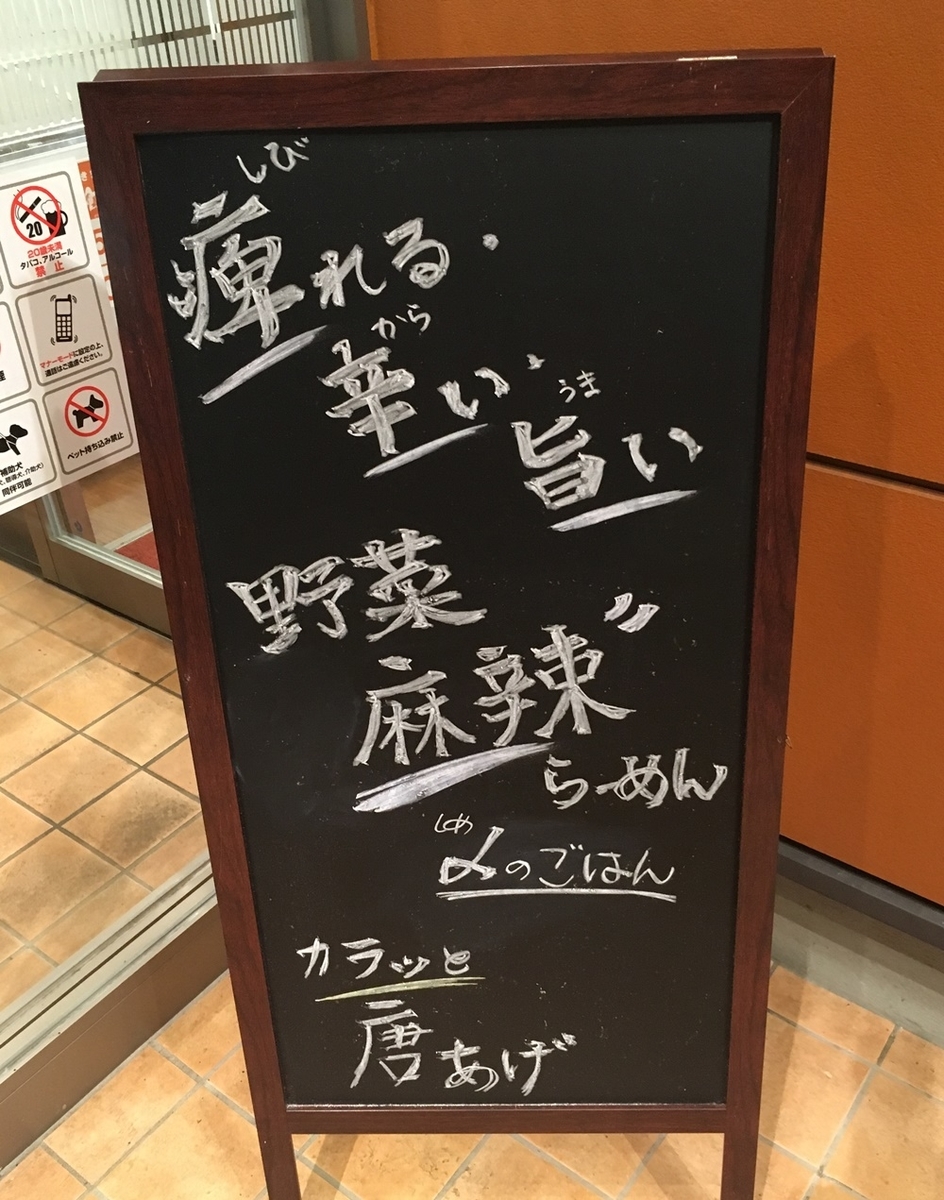 しび
痺れる・
から
辛い・
うま
旨い
野菜
麻辣〃
らーめん
しめ
〆のごはん
カラッと
唐あげ
20
20歳未満
タバコ、アルコール
禁止
マナーモードに設定の上、
通話はご遠慮ください。
ペット持ち込み禁止
補助犬
同伴可能